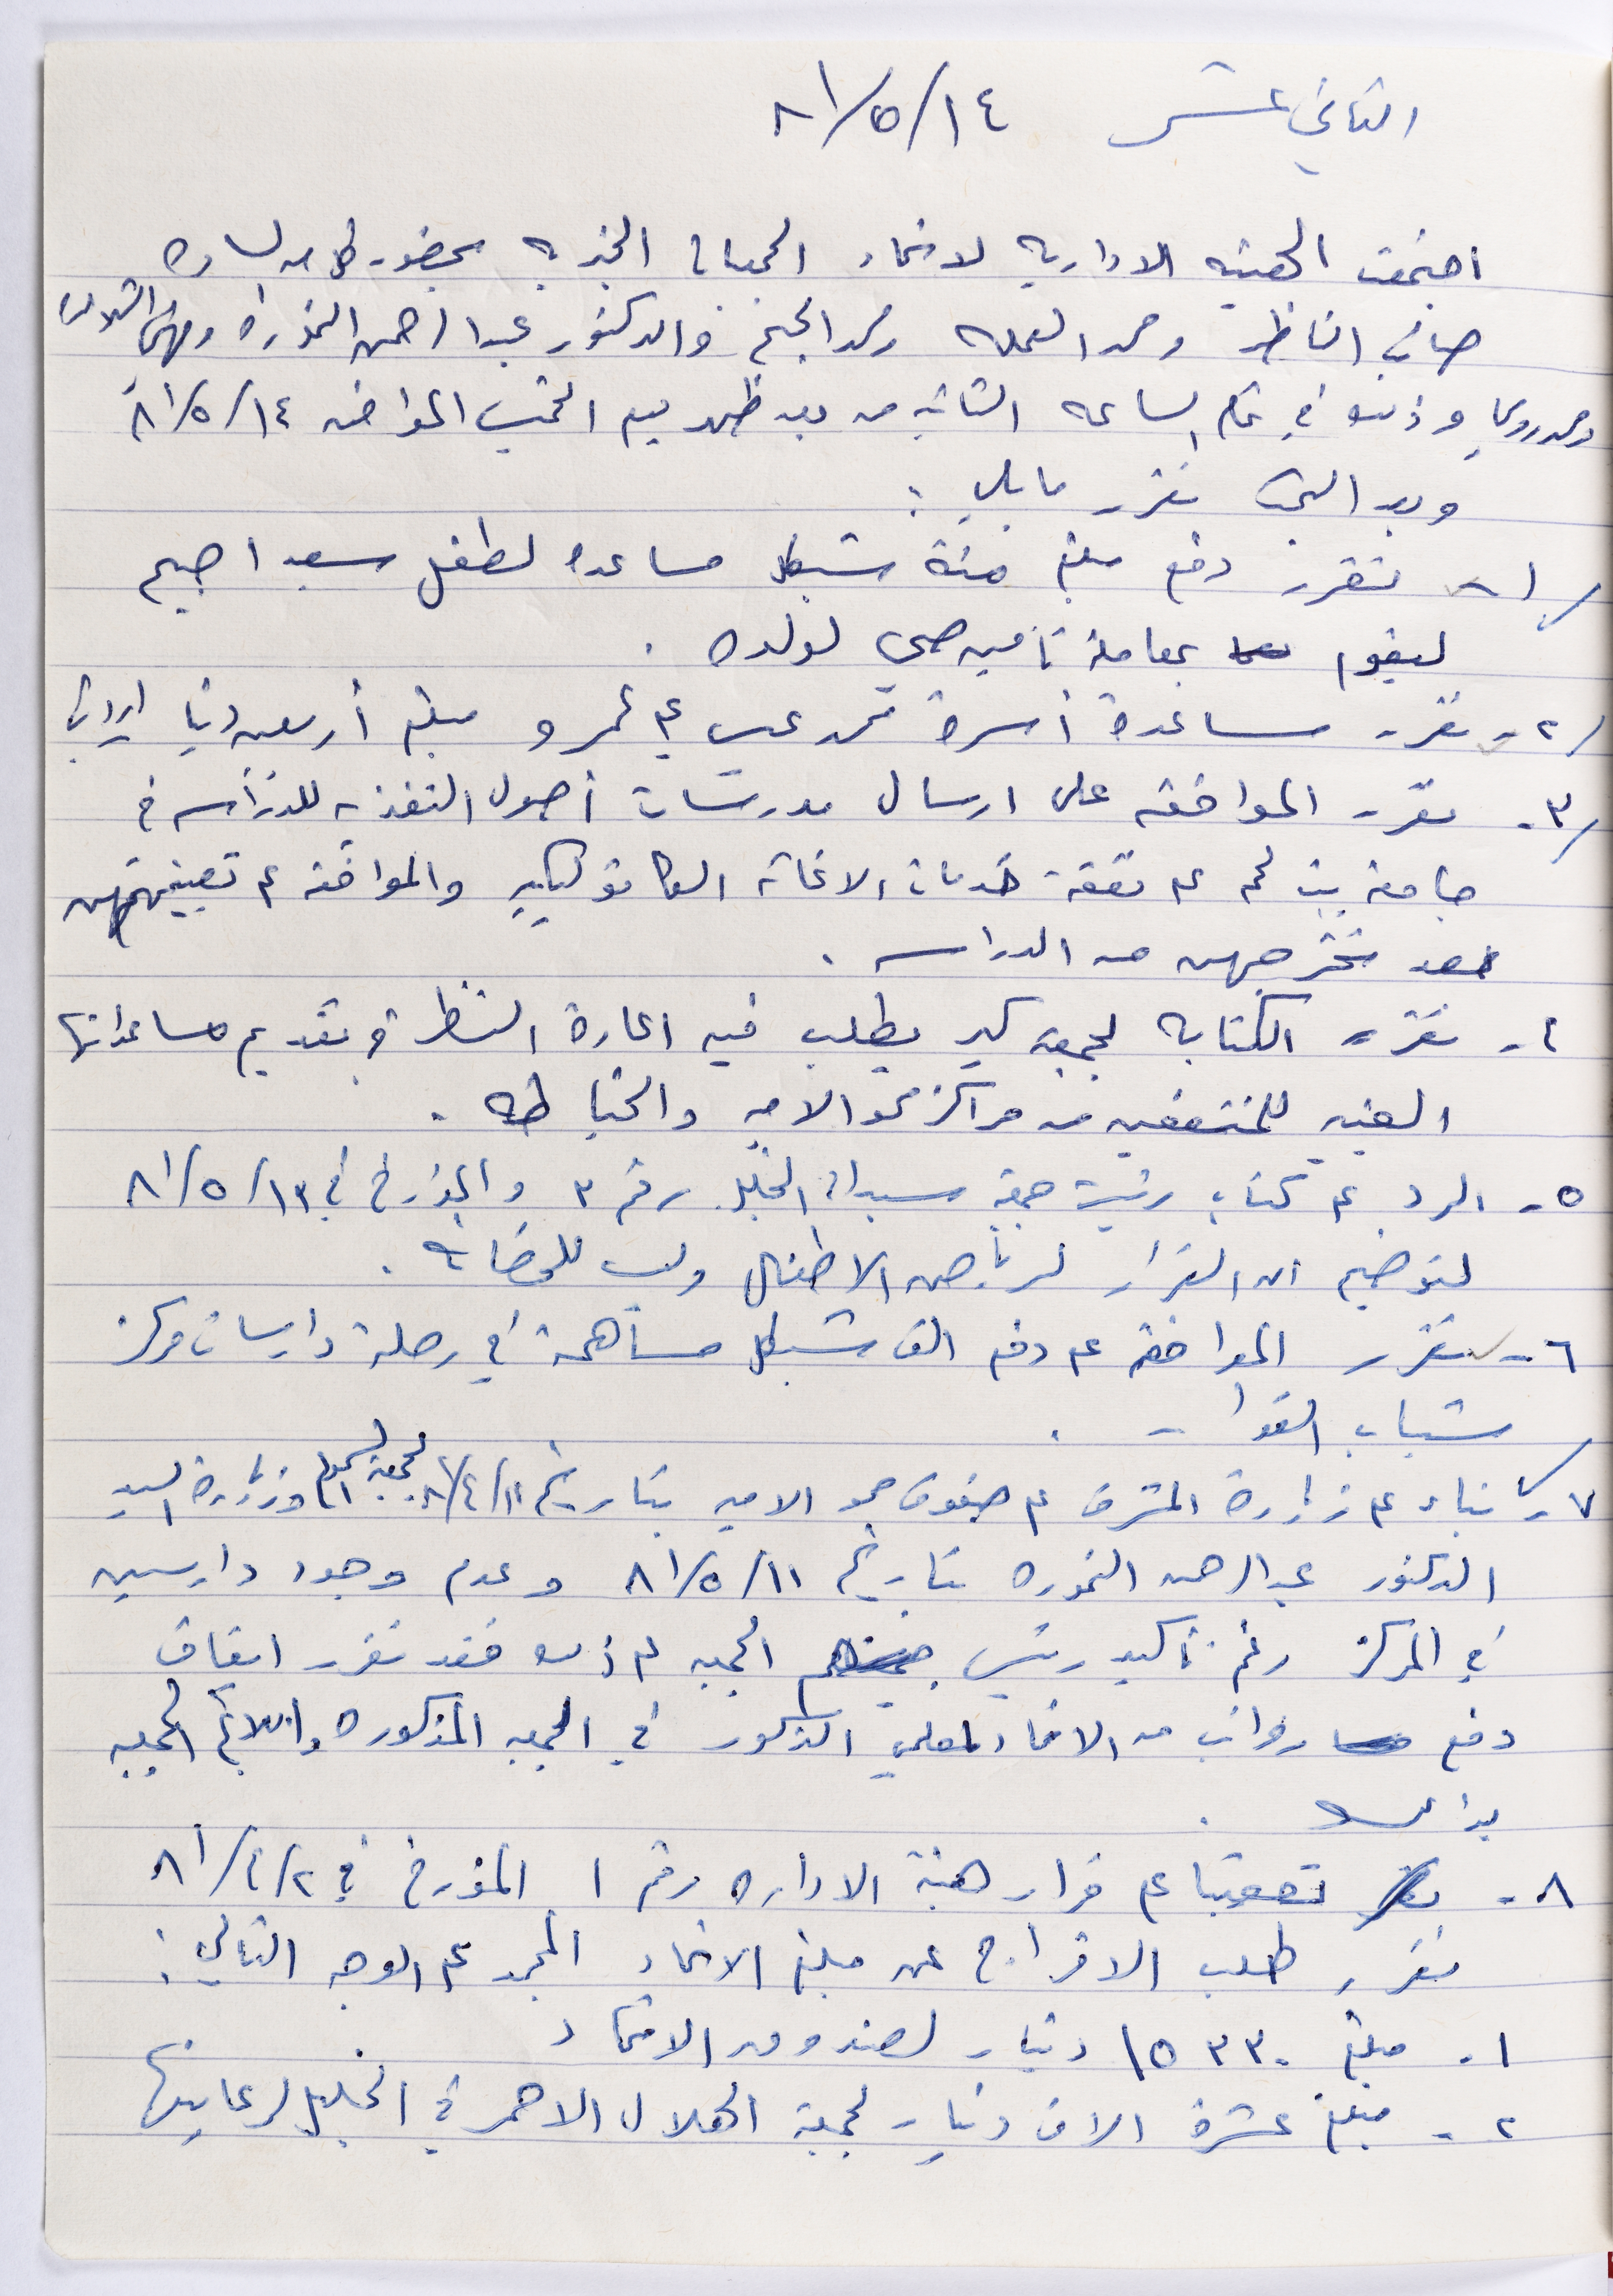 الثاني عشر ١٤/٥/٨١
اجتمعت الهيئه الاداريه لاتحاد الجمعيات الخيريه بحضور كل من الساده
صائب الناظر ومحمد العمله ومحمد والدكتور عبد الرحمن النمورة
وذلك في تمام الساعه الثانيه من بعد ظهر يوم الخميس الموافق ١٤/٥/٨١
وبعد البحث تقرر ما يلي :
١- تقرر دفع مبلغ مئة شيكل مساعدة لطفل سعد
ليقوم بمعاملة تامين صحي لولده .
٢- تقرر مساعدة أسرة محمد عمرو مبلغ أربعين دينار اردني
٣- تقرر الموافقه على ارسال مدرسات أصول التغذيه للدراسه في
جامعة بيت لحم على نفقة خدمات الاغاثه الكاثوليكيه والموافقه على تعيينهن
بعد تخرجهن من الدراسه .
٤- تقرر الكتابه لجمعية كير يطلب فيه اعادة النظر في تقديم مساعداتها
العينيه للمنتفعين من مراكز محو الاميه والخياطه .
٥- الرد على كتاب رئيسة جمعية سيدات الخليل رقم ٣ والمؤرخ في ١٣/٥/٨١
لتوضيح ان القرار لرياض الاطفال وليس للحضانه .
٦- تقرر الموافقه على دفع الف شيكل مساهمة في رحلة دارسات مركز
شباب الفوار .
٧- بناء على زيارة المشرف على صفوف محو الاميه بتاريخ ١١/٤/٨١ لجمعية وزيارة السيد
الدكتور عبد الرحمن النموره بتاريخ ١١/٥/٨١ وعدم وجود دارسين
في المركز رغم تأكيد رئيس الجمعيه على ذلك فقد تقرر ايقاف
دفع رواتب من الاتحاد لمعلمي الذكور في الجمعيه المذكوره وابلاغ الجمعيه
بذلك .
٨- تعقيبا على قرار هيئة الاداره رقم ١ المؤرخ في ٢/٤/٨١
تقرر طلب الافراج عن مبلغ الاتحاد المجمد على الوجه التالي :
١- مبلغ ١٥٣٣٠ دينار لصندوق الاتحاد
٢- مبلغ عشرة الاف دينار لجمعية الهلال الاحمر في الخليل لرعايتها